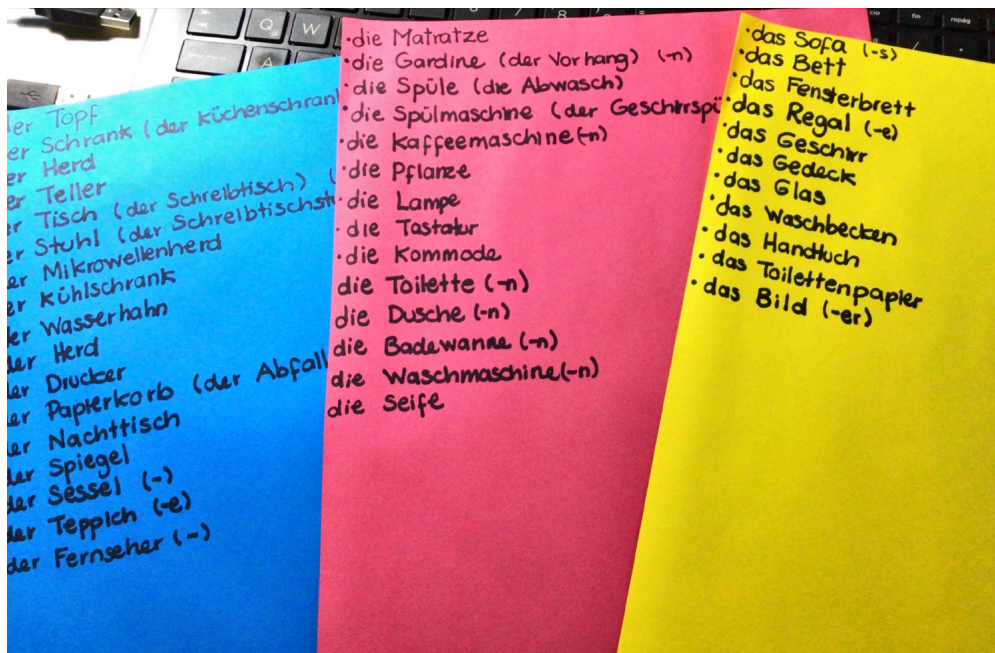 Q W
7 8
cio fin repág
A
er Topf
er Schrank (der Küchenschran
er Herd
er Teller
er Tisch (der Schreibtisch) (
er Stuhl (der Schreibtischst
er Mikrowellenherd
er Kühlschrank
er Wasserhahn
der Herd
der Drucker
er Papierkorb (der Abfall
er Nachttisch
der Spiegel
der Sessel (-)
der Teppich (-e)
der Fernseher (-)
·die Matratze
·die Gardine (der Vorhang) (-n)
·die Spüle (die Abwasch)
·die Spülmaschine (der Geschirrspü
·die Kaffeemaschine (-n)
·die Pflanze
·die Lampe
·die Tastatur
·die Kommode
die Toilette (-n)
die Dusche (-n)
die Badewanne (-n)
die Waschmaschine (-n)
die Seife
·das Sofa (-s)
·das Bett
·das Fensterbrett
·das Regal (-e)
·das Geschirr
·das Gedeck
·das Glas
·das Waschbecken
·das Handtuch
·das Toilettenpapier
·das Bild (-er)